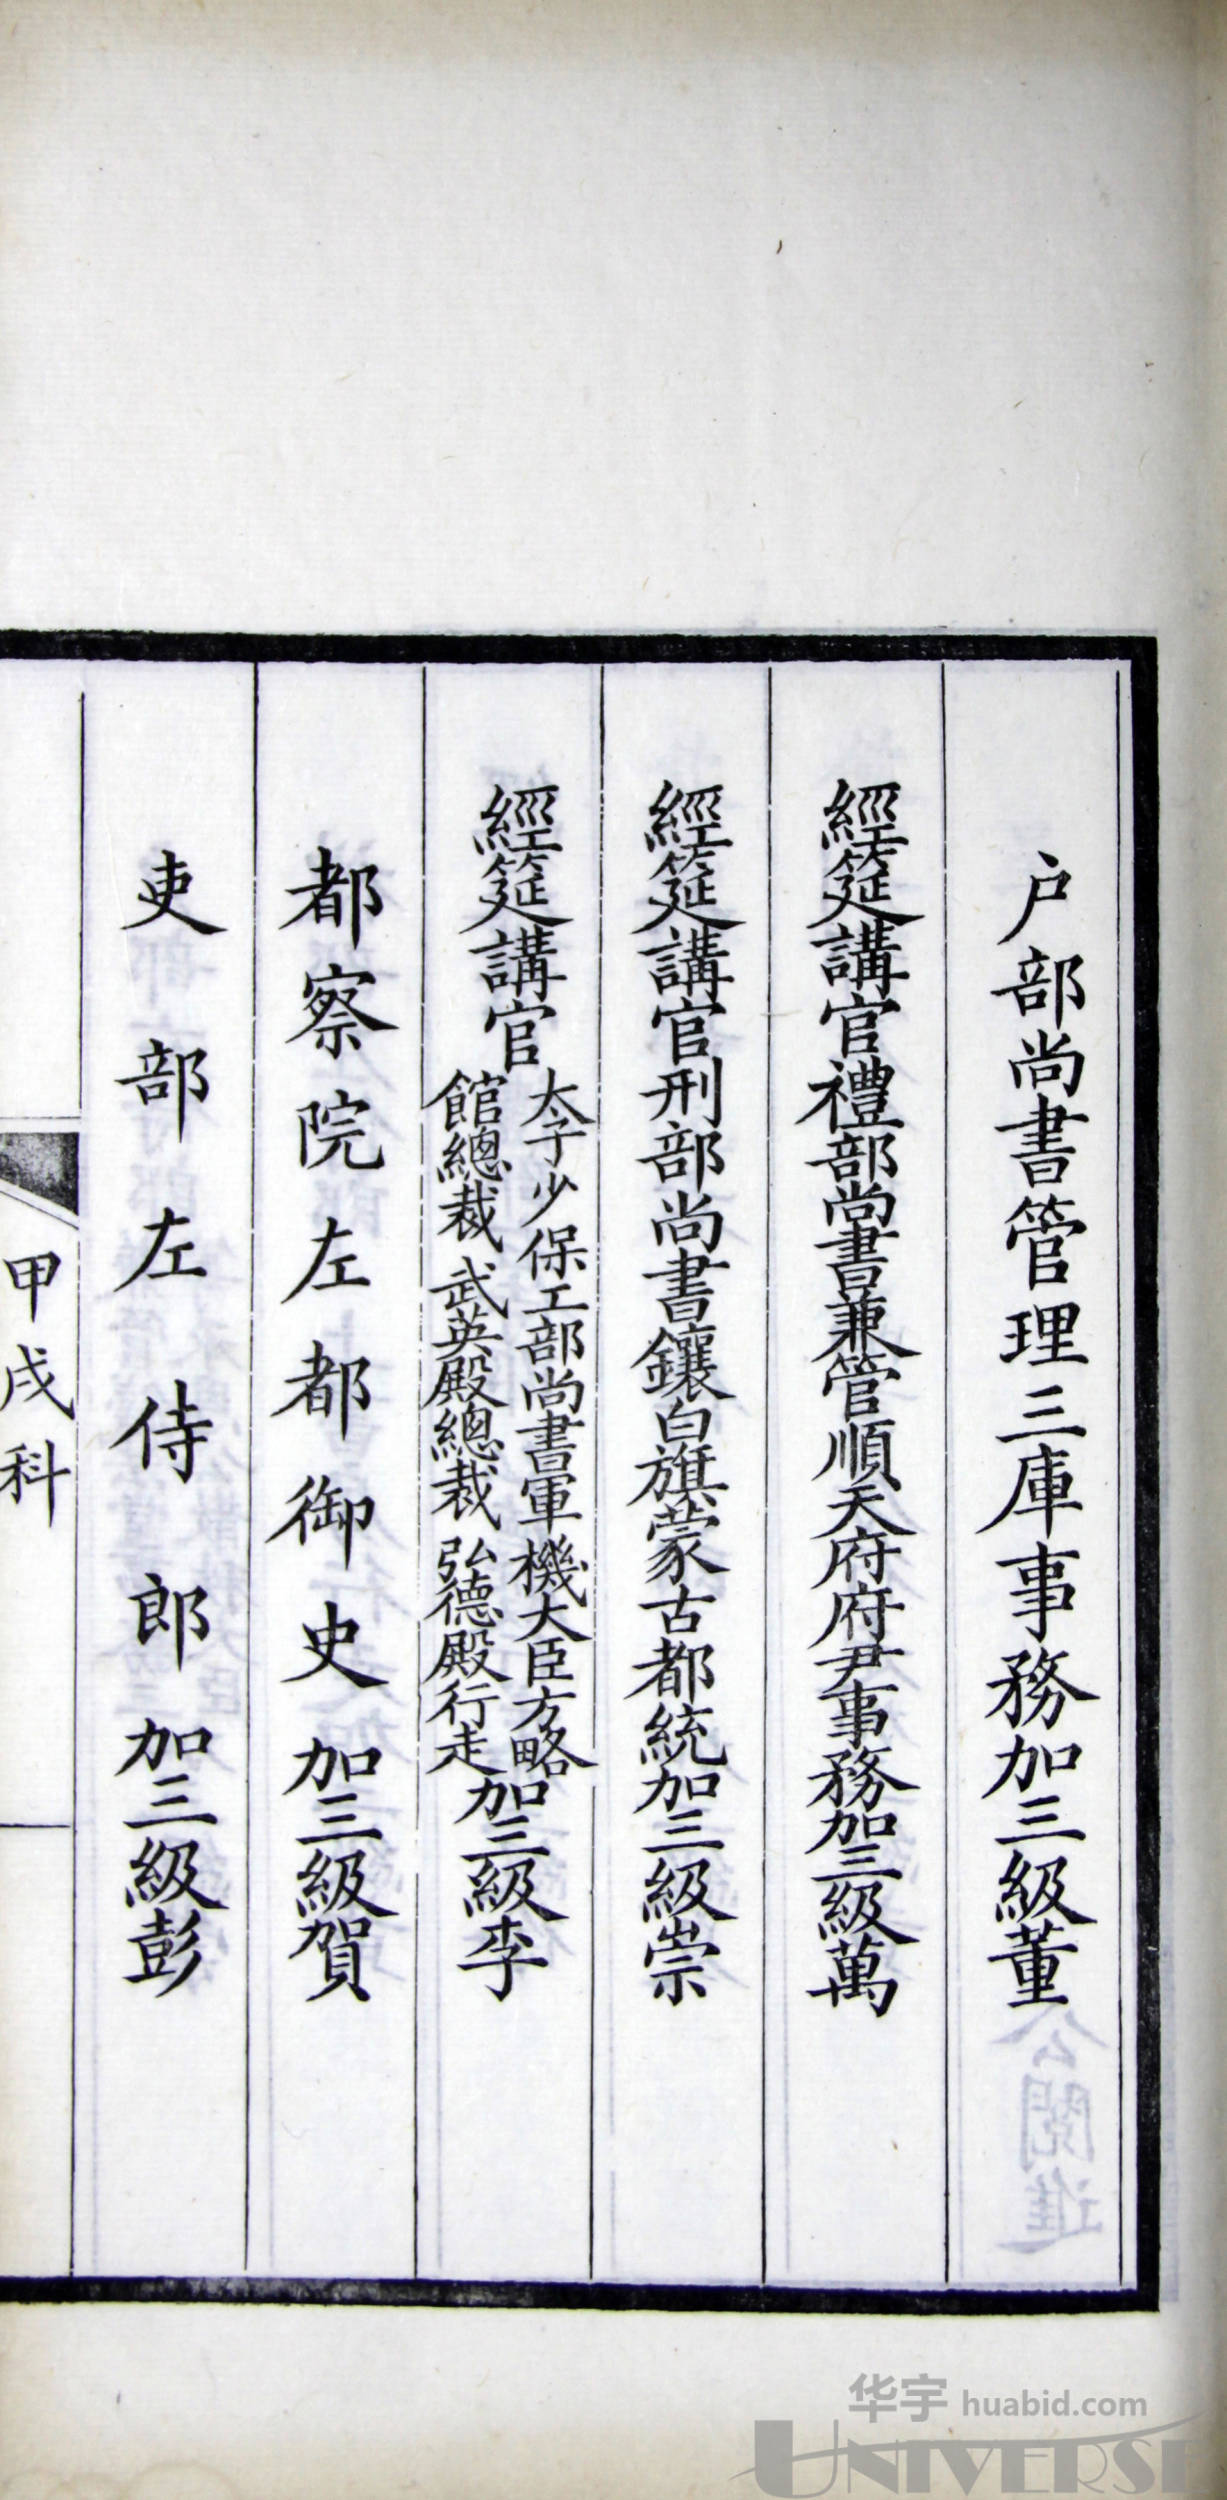 户部尚書管理三庫事務加三級董
經筵講官禮部尚書兼管順天府府尹事務加三級萬
經筵講官刑部尚書鑲白旗蒙古都統加三級崇
經筵講官太子少保工部尚書軍機大臣方略
館總裁武英殿總裁弘德殿行走加三級李
都察院左都御史加三級賀
吏部左侍郎加三級彭
甲戌科
华宇 huabid.com
UNIVERSE